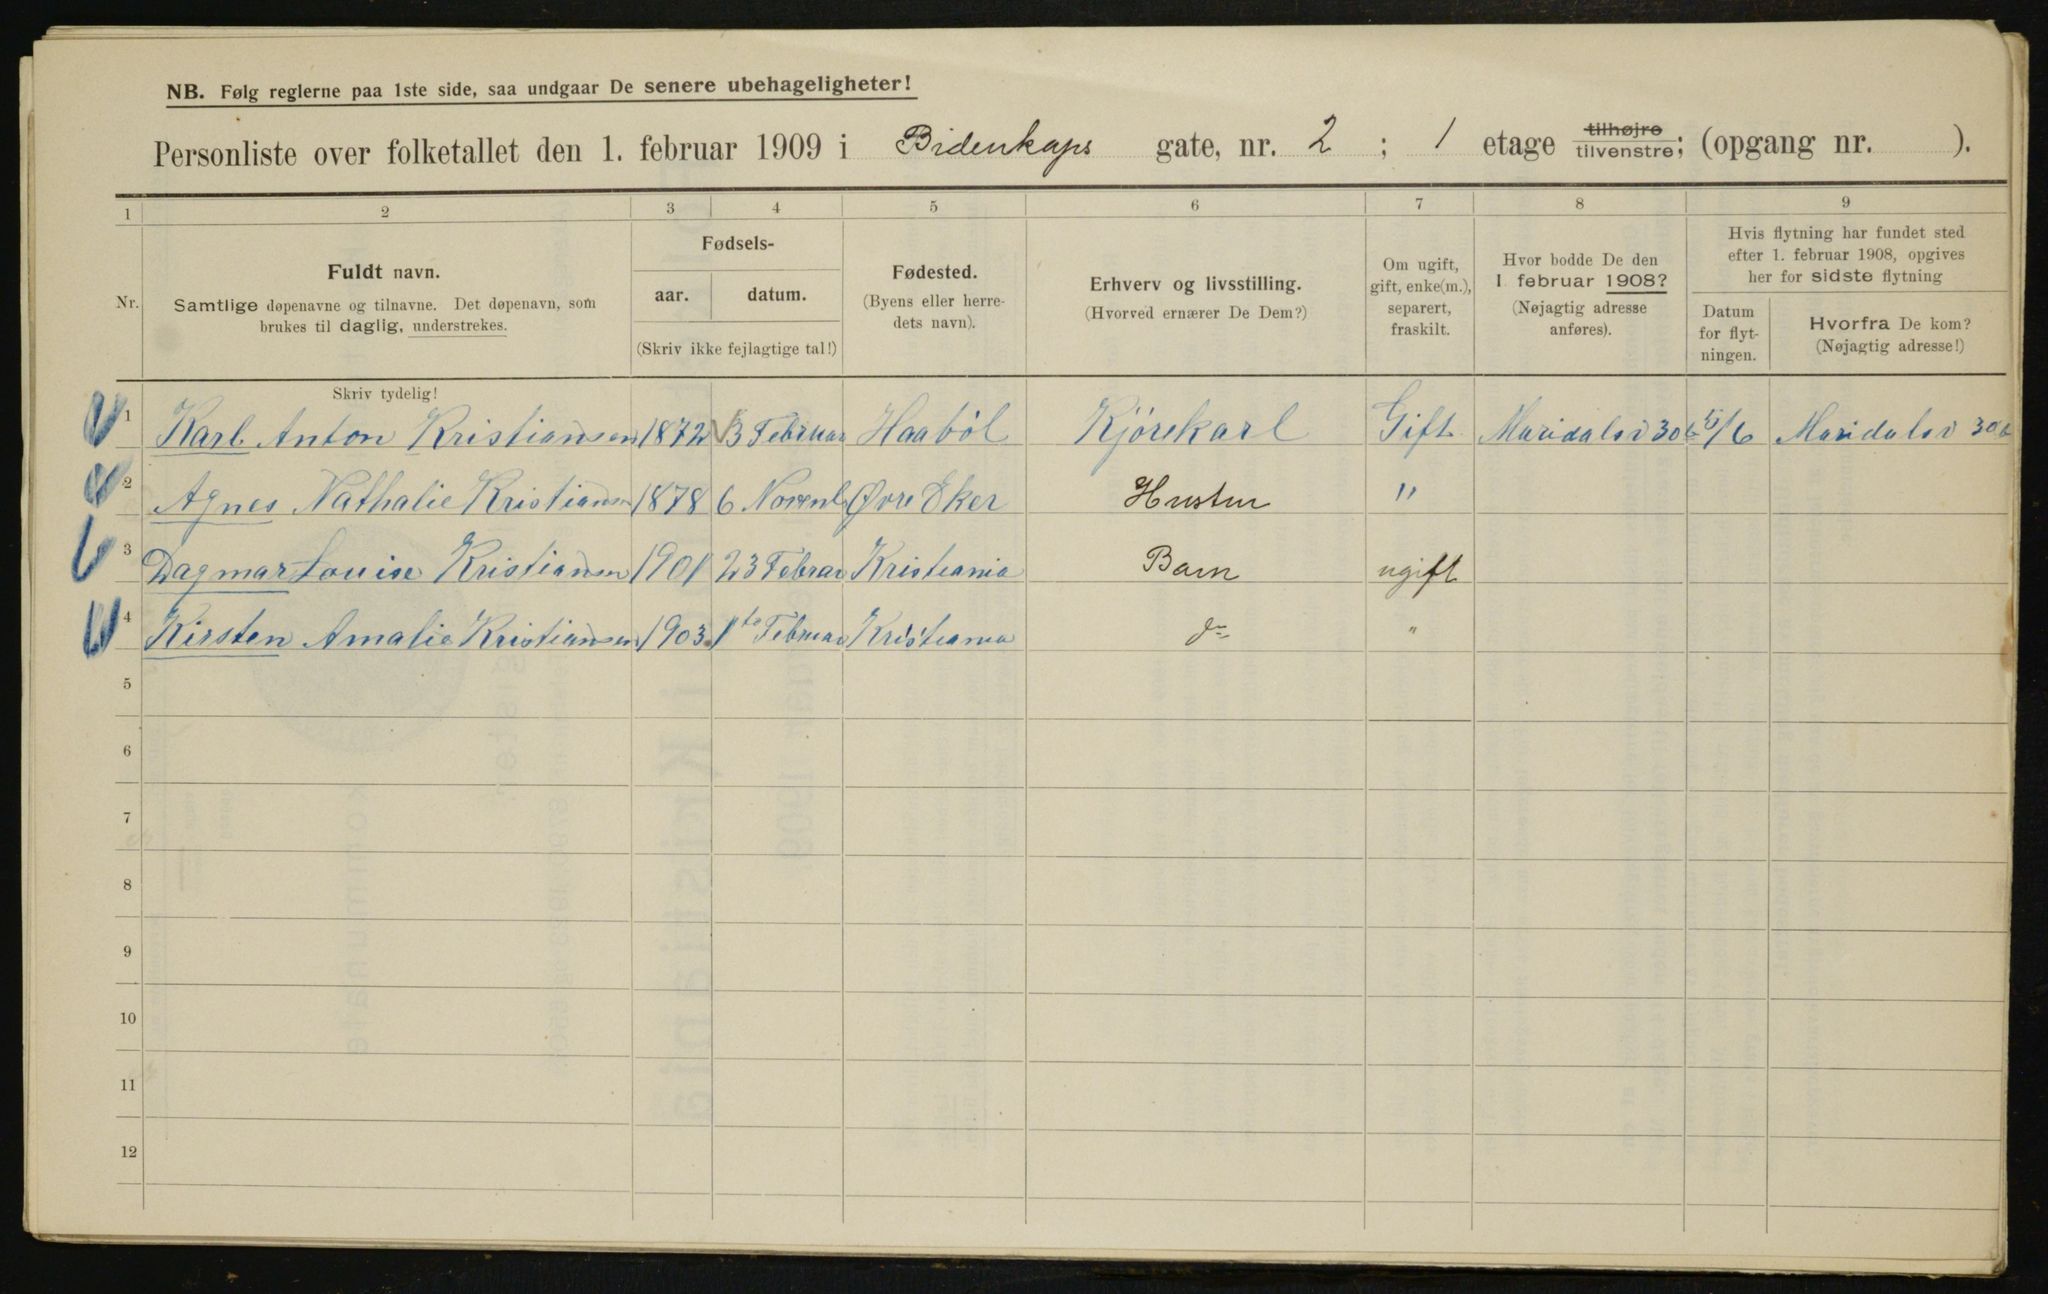 NB. Følg reglerne paa 1ste side, saa undgaar De senere ubehageligheter!
Personliste over folketallet den 1. februar 1909 i Bidenkaps gate, nr. 2 ; 1 etage tilhøjre tilvenstre; (opgang nr. ).
1 2 3 4 5 6 7 8 9
Nr.
Fuldt navn.
Samtlige døpenavne og tilnavne. Det døpenavn, som
brukes til daglig, understrekes.
Fødsels-
aar. datum.
(Skriv ikke fejlagtige tal!)
Fødested.
(Byens eller herre-
dets navn).
Erhverv og livsstilling.
(Hvorved ernærer De Dem?)
Om ugift,
gift, enke(m.),
separert,
fraskilt.
Hvor bodde De den
1. februar 1908?
(Nøjagtig adresse
anføres).
Hvis flytning har fundet sted
efter 1. februar 1908, opgives
her for sidste flytning
Datum
for flyt-
ningen.
Hvorfra De kom?
(Nøjagtig adresse!)
Skriv tydelig!
1 Karl Anton Kristiansen 1872 3 Februar Haabøl Kjørekarl Gift Maridalsv 30 /6 Maridalsv 30
2 Agnes Nathalie Kristiansen 1878 6 Novemb Øvre Eker Hustru "
3 Dagmar Louise Kristiansen 1901 23 Februar Kristiania Barn ugift
4 Kirsten Amalie Kristiansen 1903 1ste Februar Kristiania do "
5
6
7
8
9
10
11
12